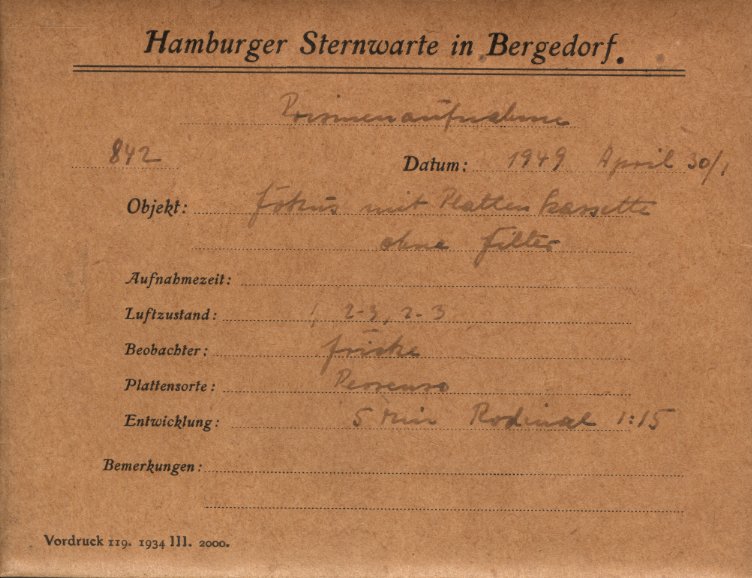 Hamburger Sternwarte in Bergedorf.
Prismenaufnahme
842 Datum: 1949 April 30/1
Objekt: Fokus mit Platten kassette
ohne Filter
Aufnahmezeit:
Luftzustand: 1, 2-3, 2-3
Beobachter:
Plattensorte:
Entwicklung: 5 Min Rodinal 1:15
Bemerkungen:
Vordruck 119. 1934 III. 2000.